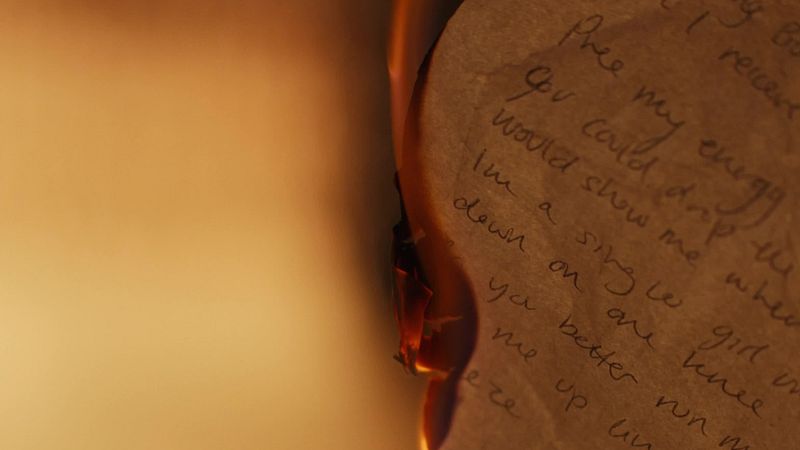 my
I receive
Free my energy
You could drop the
would show me when
Im a single girl
down on one knee
ya better run
me up